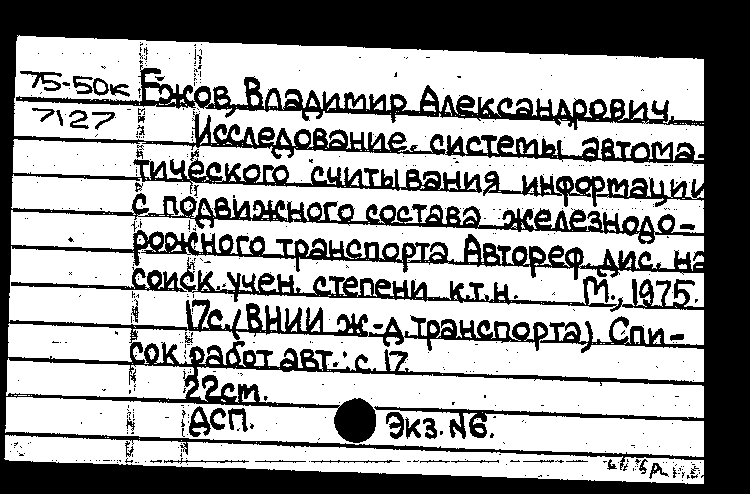 75-50к Ёжов, Владимир Александрович.
7127 Исследование системы автома-
тического считывания информации
с подвижного состава железнодо-
рожного транспорта. Автореф. дис. на
соиск. учен. степени к.т.н. М., 1975.
17с. (ВНИИ ж.-д. транспорта). Спи-
сок работ авт.: с. 17.
22cm.
ДСП. Экз. №6.